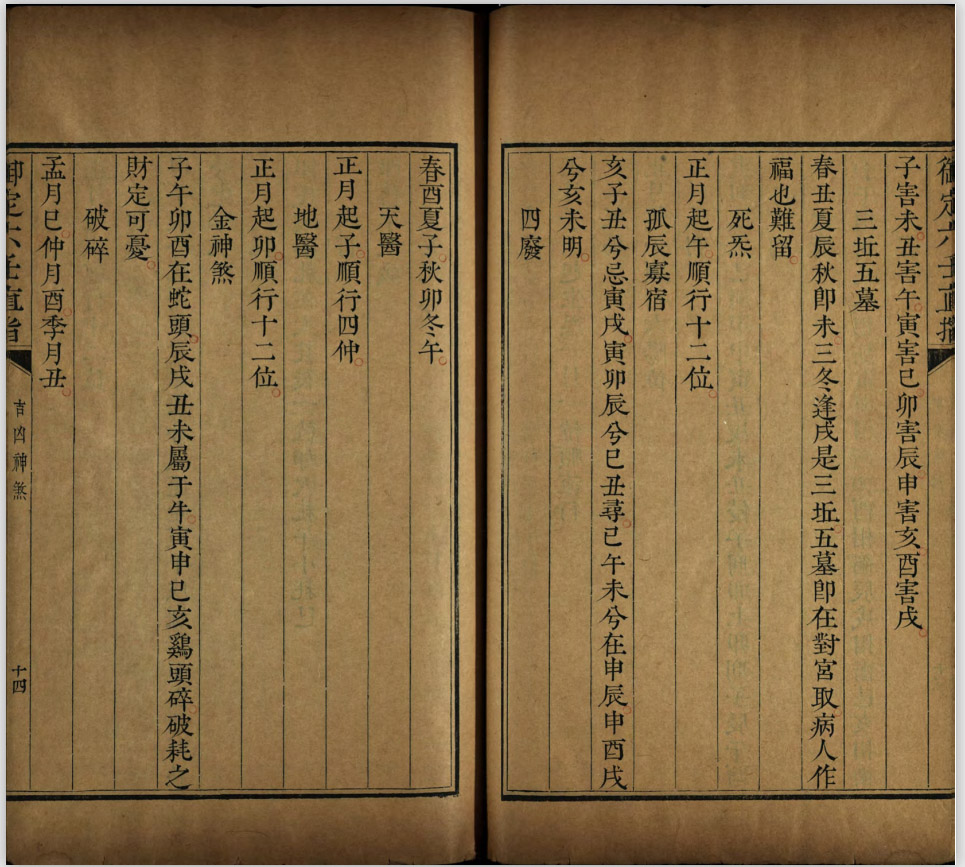 御定六壬直指
子害未丑害午寅害巳卯害辰申害亥酉害戌
三坵五墓
春丑夏辰秋卽未三冬逢戌是三坵五墓卽在對宮取病人作
福也難留
死炁
正月起午順行十二位
孤辰寡宿
亥子丑兮忌寅戌寅卯辰兮巳丑尋巳午未兮在申辰申酉戌
兮亥未明
四廢
春酉夏子秋卯冬午
天醫
正月起子順行四仲
地醫
正月起卯順行十二位
金神煞
子午卯酉在蛇頭辰戌丑未屬于牛寅申巳亥鷄頭碎破耗之
財定可憂
破碎
孟月巳仲月酉季月丑
御定六壬直指
吉凶神煞
十四